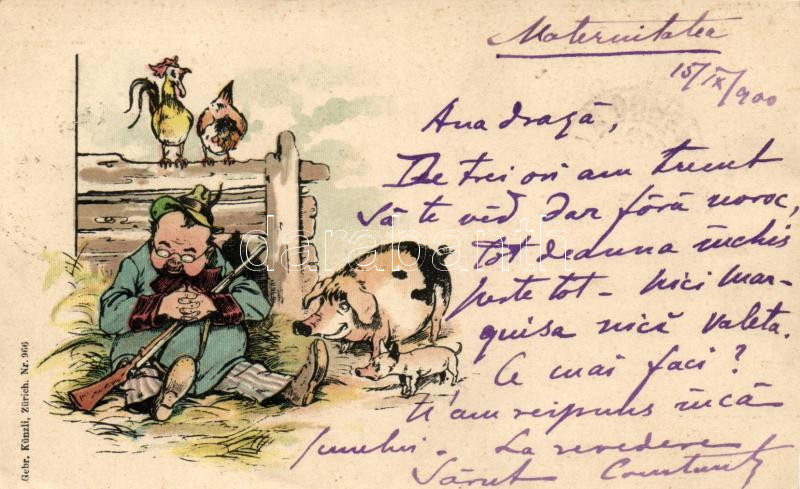 Maternitatea
15/IX/900
Ana dragă,
De trei ori am trecut
să te văd dar fără noroc,
tot deauna închis
peste tot - nici mar-
quisa nică valeta.
Ce mai faci?
ți'am respuns încă
La revedere
Sărut Constant
Gebr. Künzli, Zürich. Nr. 966
darabanth